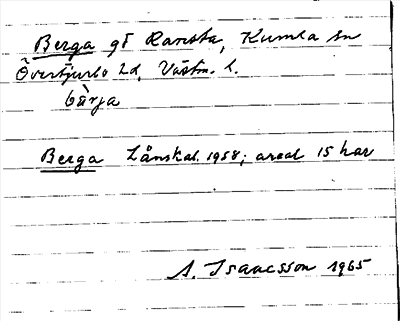 Berga gd Ransta, Kumla sn
Övertjurbo hd, Västm. l.
bàrja
Berga Länskal. 1958; areal 15 har
A. Isaacsson 1965